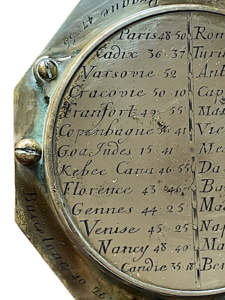 Paris 48 50 Rom
Cadix 36 37 Turi
Varsovie 52 Ant
Cracovie 50 10 Cap
Franfort 49 55 Ma
Copenhague 56 41 Vie
Goa Indes 15 41 Me
Kebec Cana 46 55 Da
Florence 43 46 Ba
Gennes 44 25 Ma
Venise 45 25 Nap
Nancy 48 40 Ma
Candie 35 18 Ber
Barcelonne 40 26
Prague